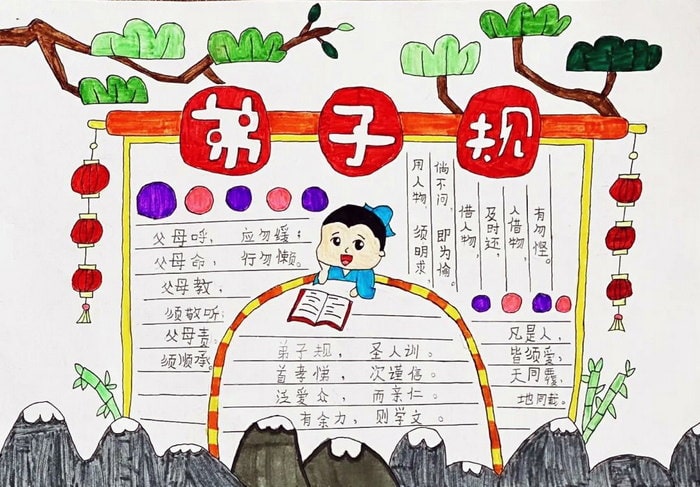 弟子规
父母呼,应勿缓;
父母命,行勿懒。
父母教,
须敬听;
父母责,
须顺承。
用人物,须明求,
倘不问,即为偷。
借人物,
及时还,
人借物,
有勿怪。
弟子规,圣人训。
首孝悌,次谨信。
泛爱众,而亲仁。
有余力,则学文。
凡是人,
皆须爱;
天同覆,
地同载。